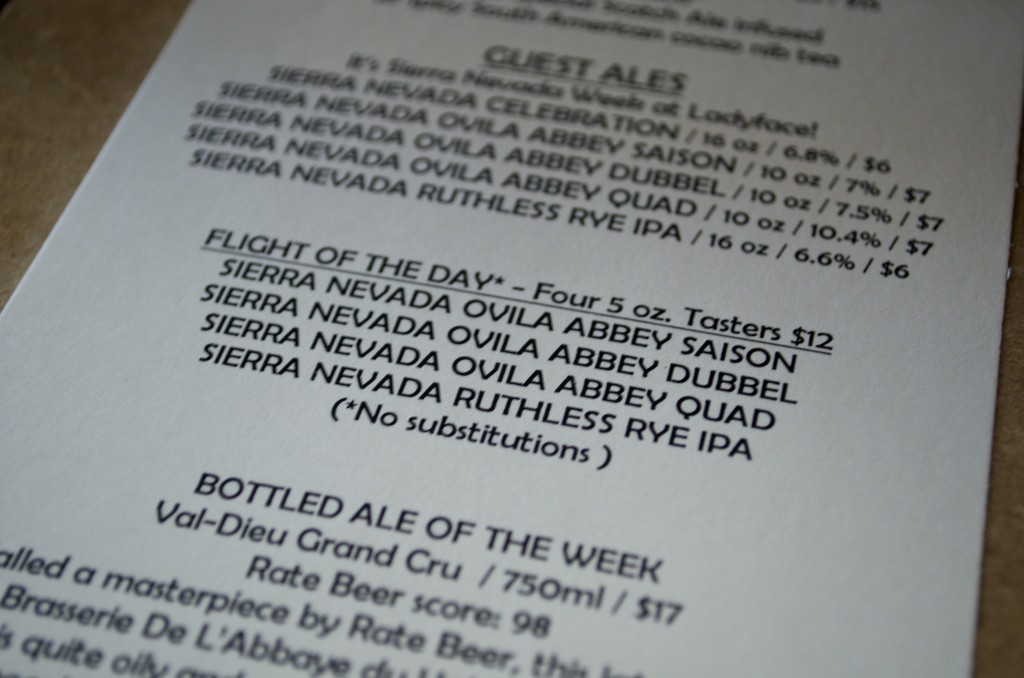 Scotch Ale infused
spicy South American cocoa nib tea
GUEST ALES
It's Sierra Nevada Week at Ladyface!
SIERRA NEVADA CELEBRATION / 16 oz / 6.8% / $6
SIERRA NEVADA OVILA ABBEY SAISON / 10 oz / 7% / $7
SIERRA NEVADA OVILA ABBEY DUBBEL / 10 oz / 7.5% / $7
SIERRA NEVADA OVILA ABBEY QUAD / 10 oz / 10.4% / $7
SIERRA NEVADA RUTHLESS RYE IPA / 16 oz / 6.6% / $6
FLIGHT OF THE DAY* - Four 5 oz. Tasters $12
SIERRA NEVADA OVILA ABBEY SAISON
SIERRA NEVADA OVILA ABBEY DUBBEL
SIERRA NEVADA OVILA ABBEY QUAD
SIERRA NEVADA RUTHLESS RYE IPA
(*No substitutions )
BOTTLED ALE OF THE WEEK
Val-Dieu Grand Cru / 750ml / $17
Rate Beer score: 98
alled a masterpiece by Rate Beer, this
Brasserie De L'Abbaye du
is quite oily and